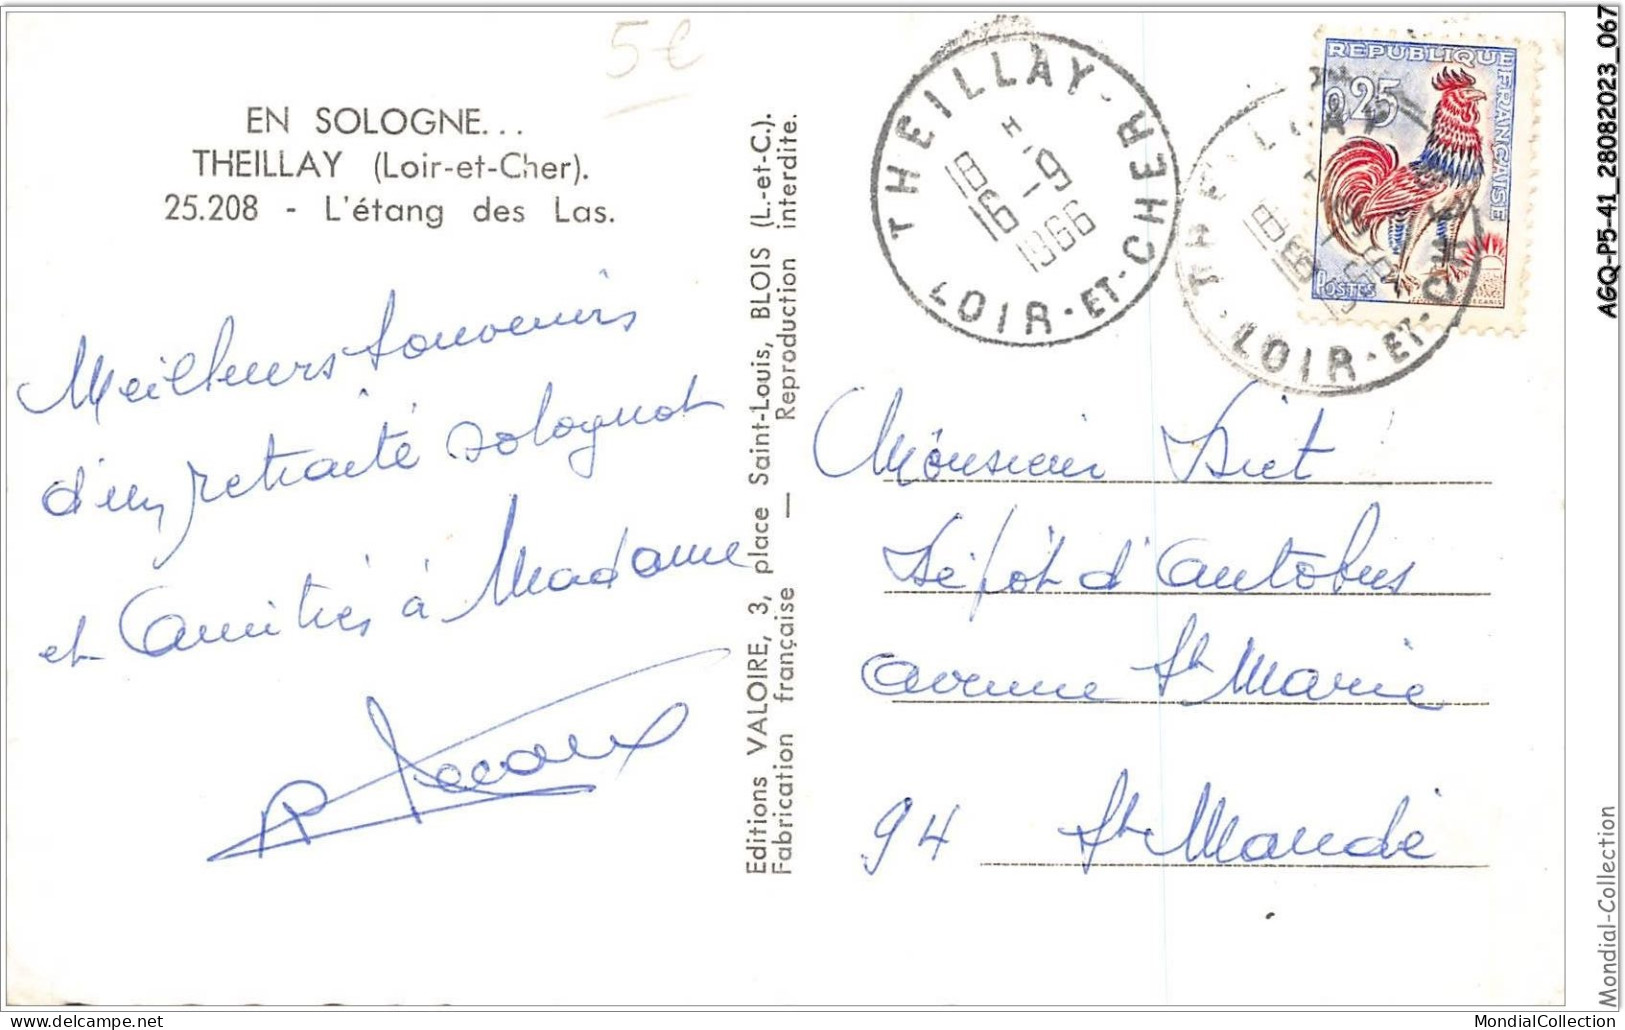 5€
EN SOLOGNE...
THEILLAY (Loir-et-Cher).
25.208 - L'étang des Las.
Meilleurs souvenirs
d'un retraité solognot
et Amitiés à Madame
Editions VALOIRE, 3, place Saint-Louis, BLOIS (L.-et-C.).
Fabrication française — Reproduction interdite.
THEILLAY - LOIR-ET-CHER
18 H
16 - 9
1966
REPUBLIQUE FRANÇAISE
0,25
POSTES
LOIR-ET-CHER
Monsieur
Dépôt d'Autobus
avenue St Marie
94 St Mandé
AGQ-P5-41_28082023_067
Mondial-Collection
delcampe.net
MondialCollection